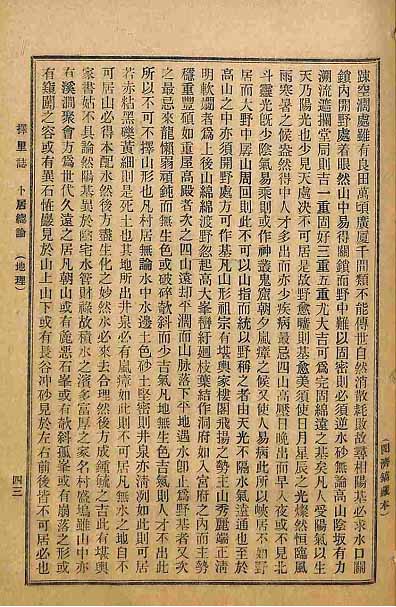 踈空濶處雖有良田萬頃廣厦千間類不能傳世自然消散耗敗故尋相陽基必求水口關
鎖內開野處着眼然山中易得關鎖而野中難以固密則必須逆水砂無論高山陰坂有力
溯流遮攔堂局則吉一重固好三重五重尤大吉可爲完固綿遠之基矣凡人受陽氣以生
天乃陽光也少見天處決不可居是故野愈曠則基愈美須使日月星辰之光燦然恒臨風
雨寒暑之候盎然得中人才多出而亦少疾病最忌四山高壓日晚出而早入夜或不見北
斗靈光旣少陰氣易乘則或作神叢鬼窟朝夕嵐瘴之候又使人易病此所以峽居不如野
居而大野中孱山周回則此不可以山指而統以野稱之者由天光不隔水氣遠通也至於
高山之中亦須開野處方可作基凡山形祖宗有堪輿家樓閣飛揚之勢主山秀麗端正淸
明軟嫩者爲上後山綿綿渡野忽起高大峯巒紆廻枝葉結作洞府如入宮府之內而主勢
穩重豐碩如重屋高殿者次之四山遠却平濶而山脈落下平地遇水卽止爲野基者又次
之最忌來龍懶弱頑鈍而無生色或破碎欹斜而少吉氣凡地無生色吉氣則人才不出
所以不可不擇山形也凡村居無論水中水邊土色砂土堅密則井泉亦淸冽如此則可居
若赤粘黑礫黃細則是死土也其地所出井泉必有嵐瘴如此則不可居凡無水之地自不
可居山必得本配水然後方盡生化之妙然水必來去合理然後方成鍾毓之吉此有堪輿
家書姑不具論然陽基異於陰宅水管財祿故積水之濱多富厚之家名村盛塢雖山中亦
有溪澗聚會方爲世代久遠之居凡朝山或有麁惡石峯或有欹斜孤峯或有崩落之形或
有窺闚之容或有異石怪巖見於山上山下或有長谷冲砂見於左右前後皆不可居必也
擇里誌 卜居總論 (地理)
四三